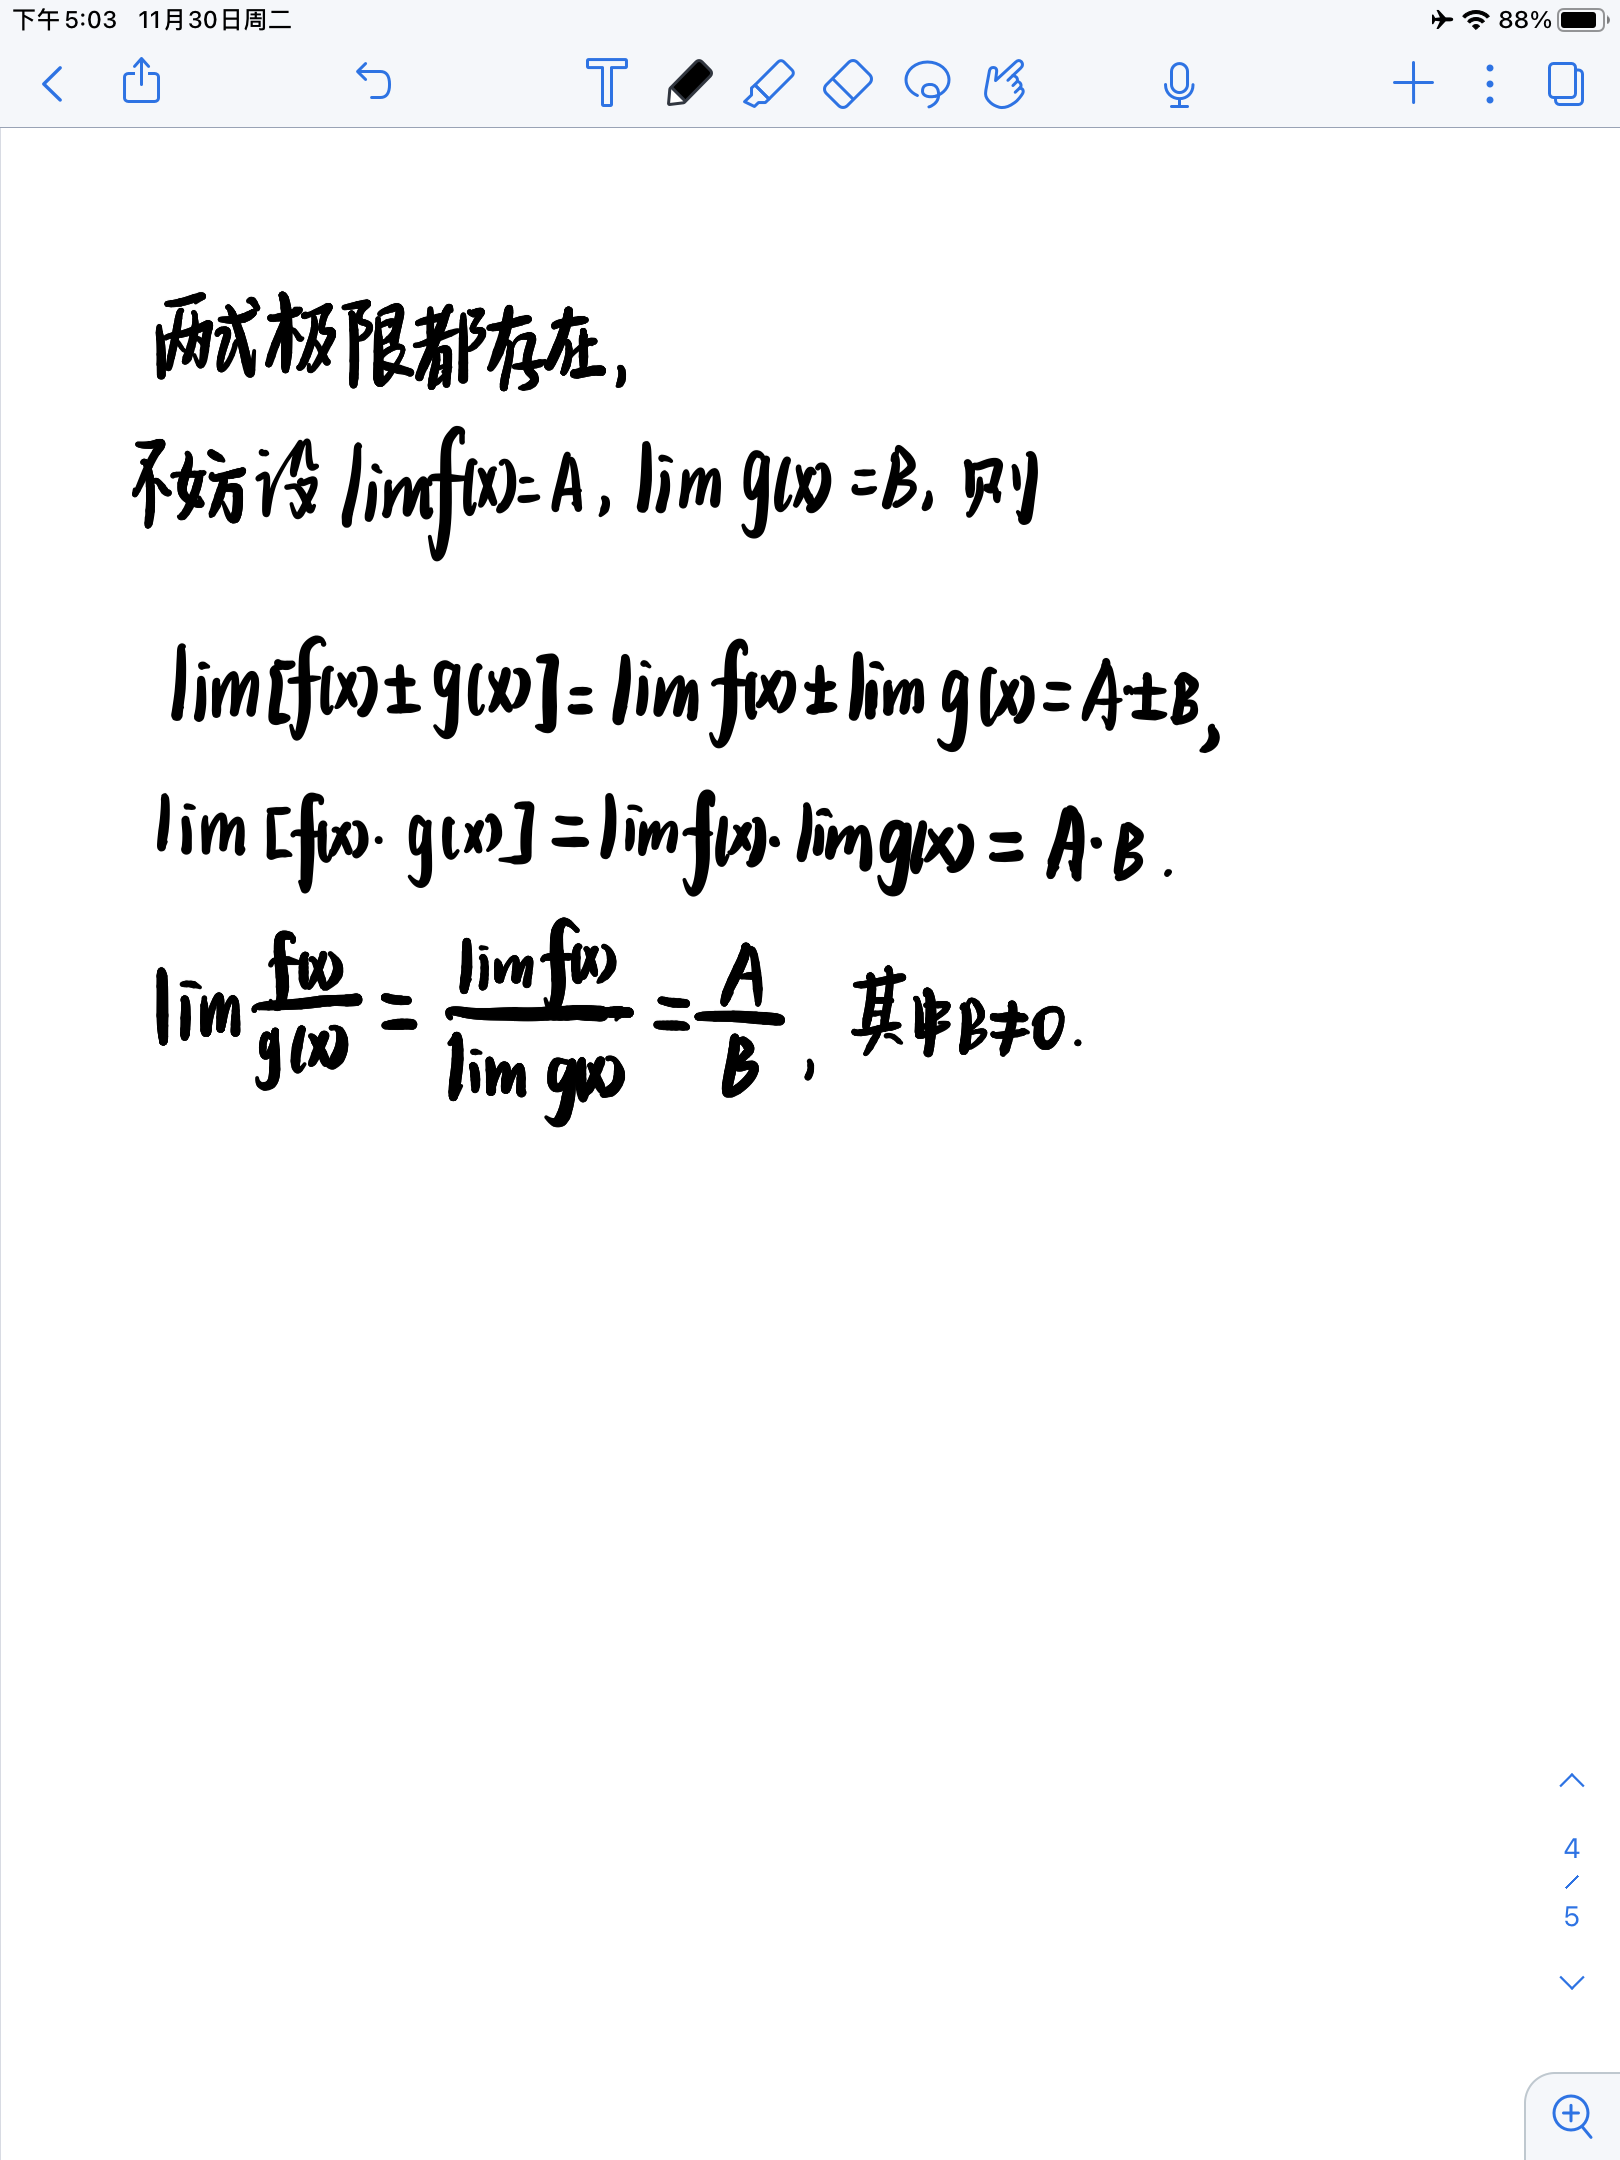 下午5:03 11月30日周二 88%
两式极限都存在,
不妨设 lim f(x) = A, lim g(x) = B, 则
lim [f(x) ± g(x)] = lim f(x) ± lim g(x) = A ± B,
lim [f(x) · g(x)] = lim f(x) · lim g(x) = A · B .
lim f(x)/g(x) = lim f(x)/lim g(x) = A/B , 其中B≠0.
4
/
5